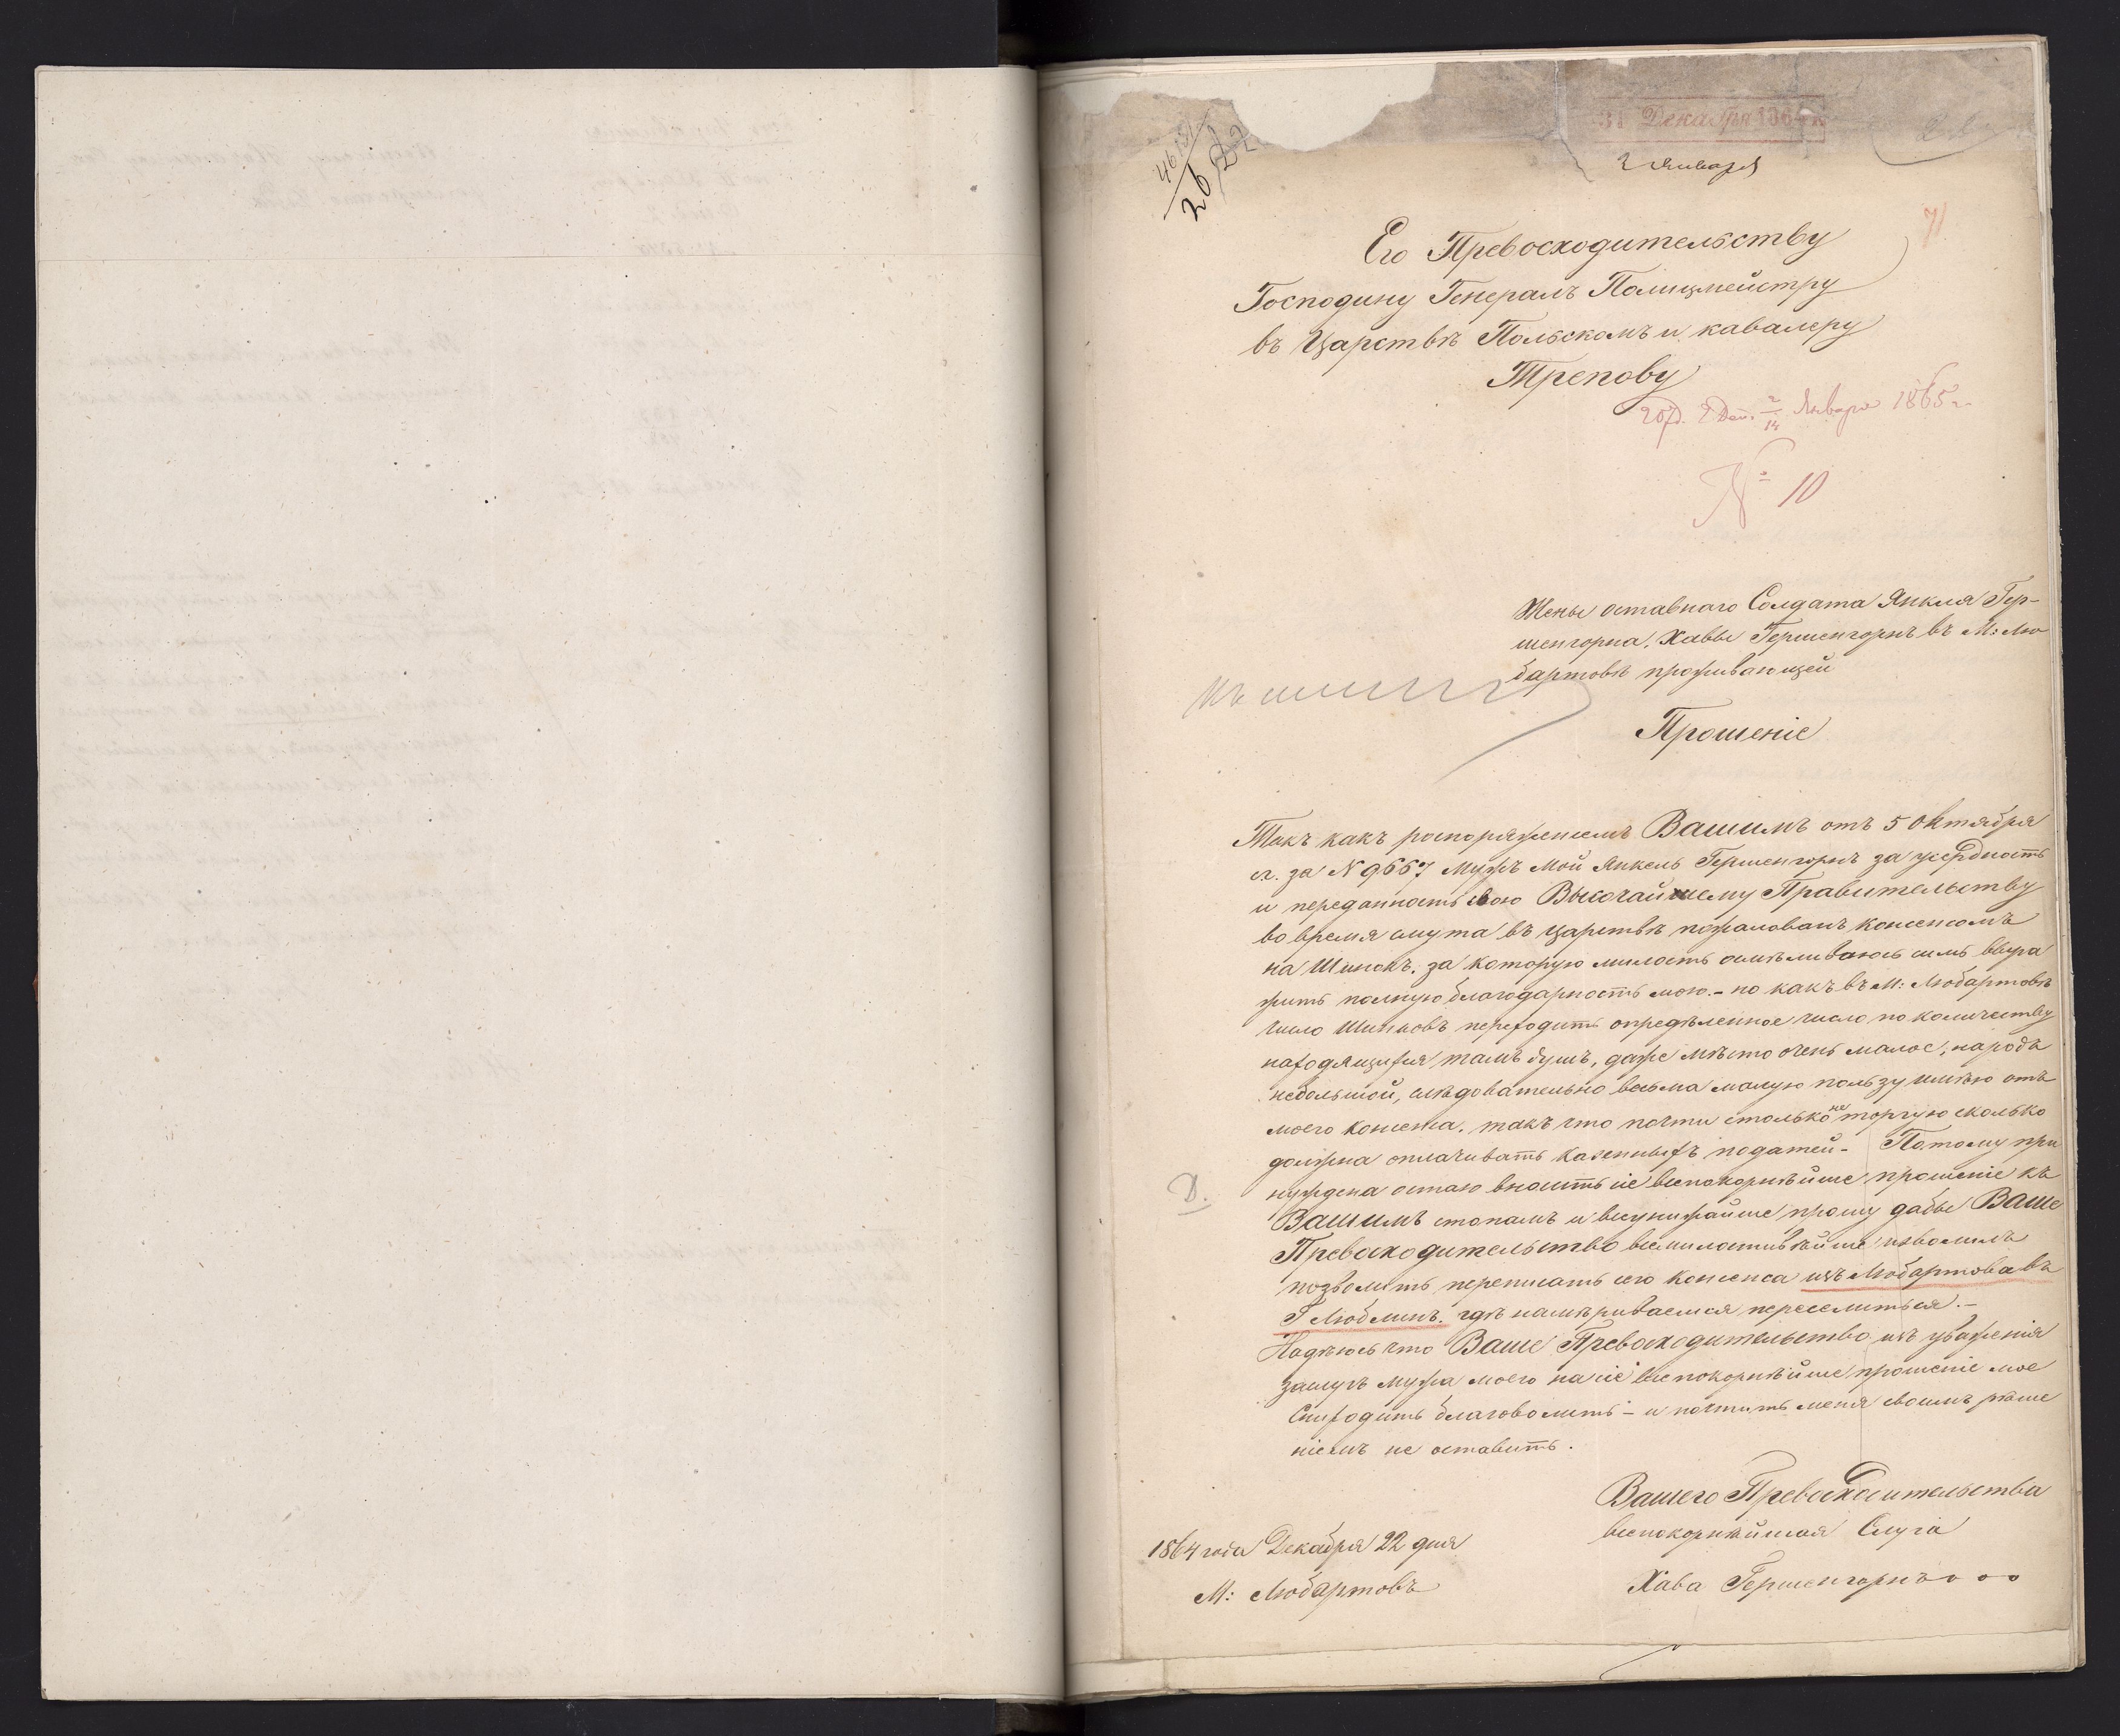 31 Декабря 1864
2 Января
71
Его Превосходительству
Господину Генералъ Полицмейстру
въ Царствѣ Польскомъ и кавалеру
Трепову
2/14 Января 1865 г.
№ 10
Жены оставнаго Солдата Янкля Гер-
шенгорна, Хаввы Гершенгорнъ въ М: Лю
бартовѣ проживающей
Прошеніе
Такъ какъ роспоряженіемъ Вашимъ отъ 5 Октября
с.г. за N 9667 Мужъ Мой Янкель Гершенгорнъ за усердность
и переданность свою Высочайшему Правительству
во время смута въ царствѣ пожалованъ консенсомъ
на Шинокъ, за которую милость осмѣливаюсь симъ выра
жить полную благодарность мою.- но какъ въ М: Любартовѣ
число Шинковъ переходитъ опредѣленное число по количеству
находящихся тамъ душъ, даже мѣсто очень малое, народъ
небольшой, слѣдовательно весьма малую пользу имѣю отъ
моего консенса. такъ что почти столько не торгую сколько
должна оплачивать казенныхъ податей - Потому при
нуждена остаю вносить сіе всепокорнѣйше прошеніе къ
Д.
Вашимъ стопамъ и всунижайше прошу дабы Ваше
Превосходительство всемилостивѣйше изволилъ
позволить переписать сего консенса изъ Любартова въ
Г Люблинъ. гдѣ намѣриваемся переселиться.-
Надѣюсь что Ваше Превосходительство изъ уваженія
заслугъ мужа моего на сіе всепокорнѣйше прошеніе мое
Снизходить благоволитъ - и почтить меня своимъ рѣше
ніемъ не оставитъ.
Вашего Превосходительства
всепокорнѣйшая Слуга
Хава Гершенгорнъ ооо
1864 года Декабря 22 дня
М: Любартовъ